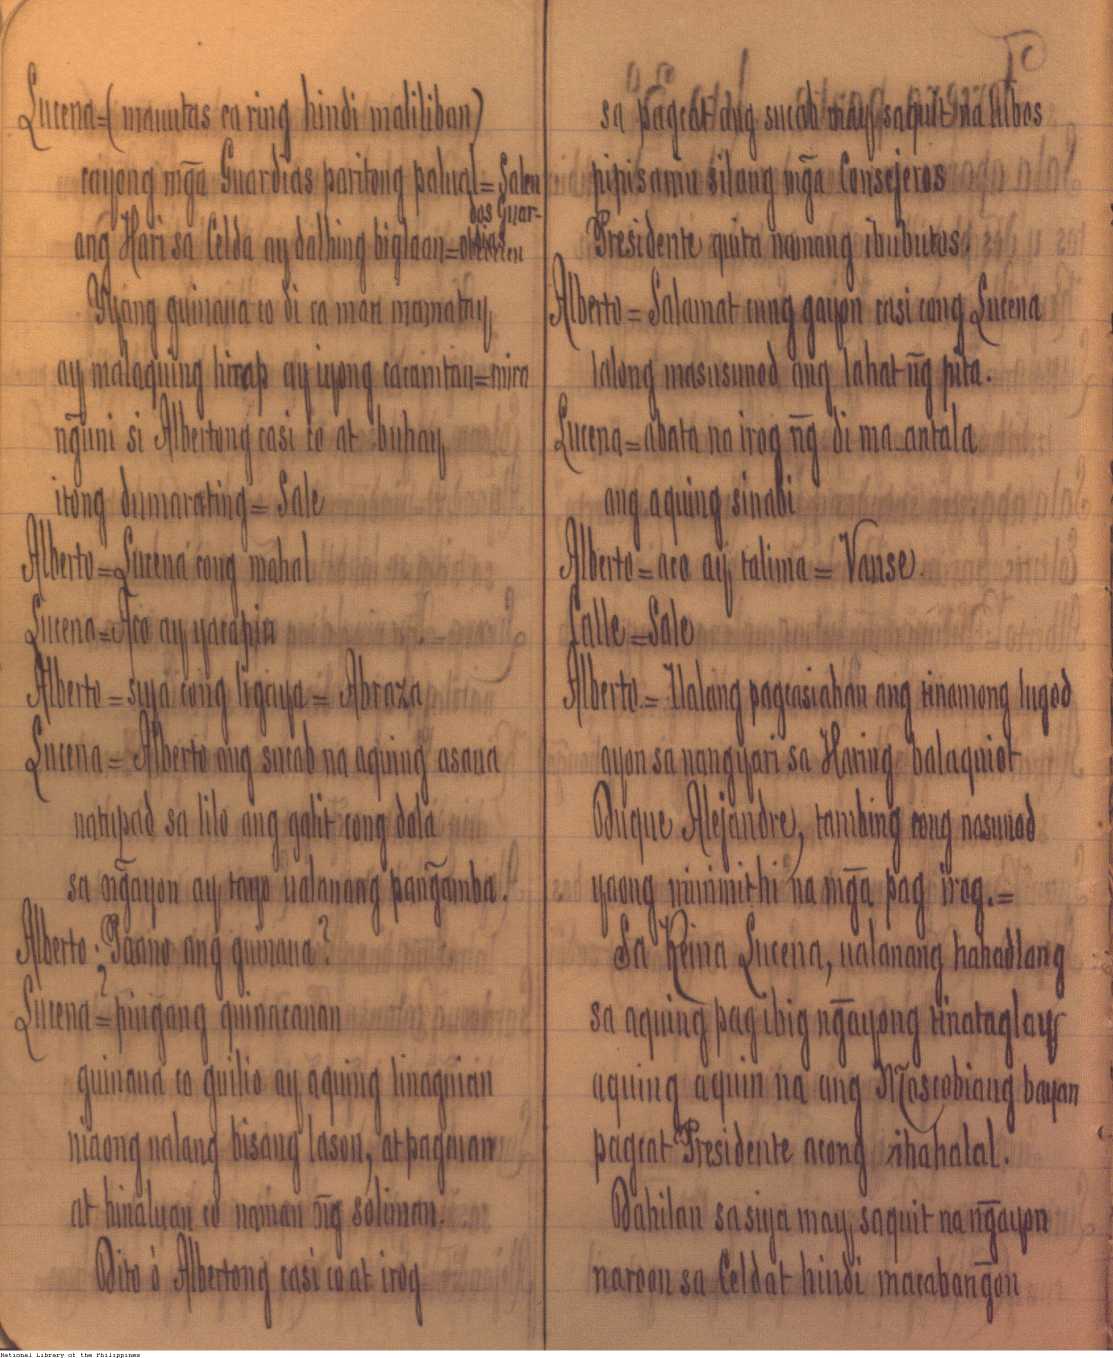 Lucena=( mauutas ca ring hindi maliliban)
cayong mḡa Guardias paritong palual= Salen
dos Guar-
dias
ang Hari sa Celda ay dalhing biglaan=obedecen
Yyang guinaua co di ca man mamatay
ay malaquing hirap ay iyong cacamtan=mira
nḡuni si Albertong casi co at buhay
itong dumarating= Sale
Alberto=Lucena cong mahal
Lucena=Aco ay yacapin
Alberto = siya cong ligaya = Abraza
Lucena= Alberto ang sucab na aquing asaua
natupad sa lilo ang galit cong dala
sa nḡayon ay tayo ualanang panḡamba.
Alberto. Paano ang guinaua?
Lucena= ¿ quinacanan
guinaua co guilio ay aquing linaguian
niaong ualang bisang lason, at pagcuan
at hinaluan co naman nḡ soliman.
Dito ó Albertong casi co at irog
10
sa pagcat ang sucab may saquit na lubos
pipisamin silang mḡa Consejeros
Presidente quita namang ibubutos.
Alberto= Salamat cung gayon casi cong Lucena
lalong masusunod ang lahat nḡ pita.
Lucena=abata na irog nḡ di ma antala
ang aquing sinabi
Alberto=aco ay talima = Vanse.
Calle=Sale
Alberto.= Ualang pagcasiahan ang tinamong lugod
ayon sa nangyari sa Haring balaquiot
Duque Alejandre, tambing cong nasunod
yaong niminithi na mḡa pag irog.=
Sa Reina Lucena, ualanang hahadlang
sa aquing pag ibig nḡayong tinataglay
aquing aquin na ang Moscobiang bayan
pagcat Presidente acong ihahalal.
Dahilan sa siya may saquit na nḡayon
naroon sa Celdat hindi macabanḡon
National Library of the Philippines